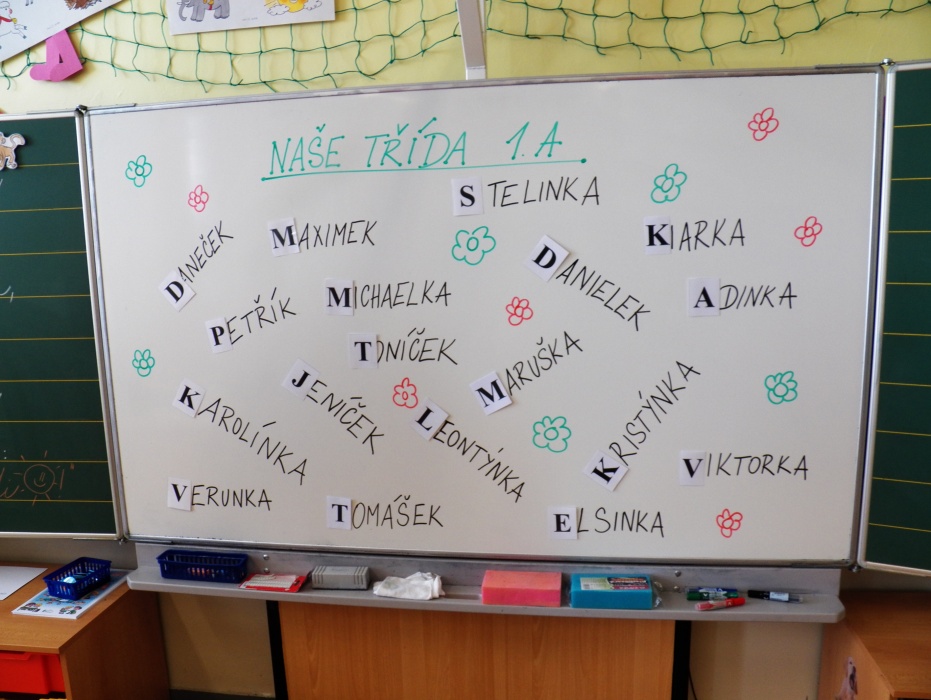 NAŠE TŘÍDA 1.A.
STELINKA
DANEČEK
MAXIMEK
KIARKA
PETŘÍK
MICHAELKA
DANIELEK
ADINKA
TONÍČEK
KAROLÍNKA
JENÍČEK
LEONTÝNKA
MARUŠKA
KRISTÝNKA
VIKTORKA
VERUNKA
TOMÁŠEK
ELSINKA